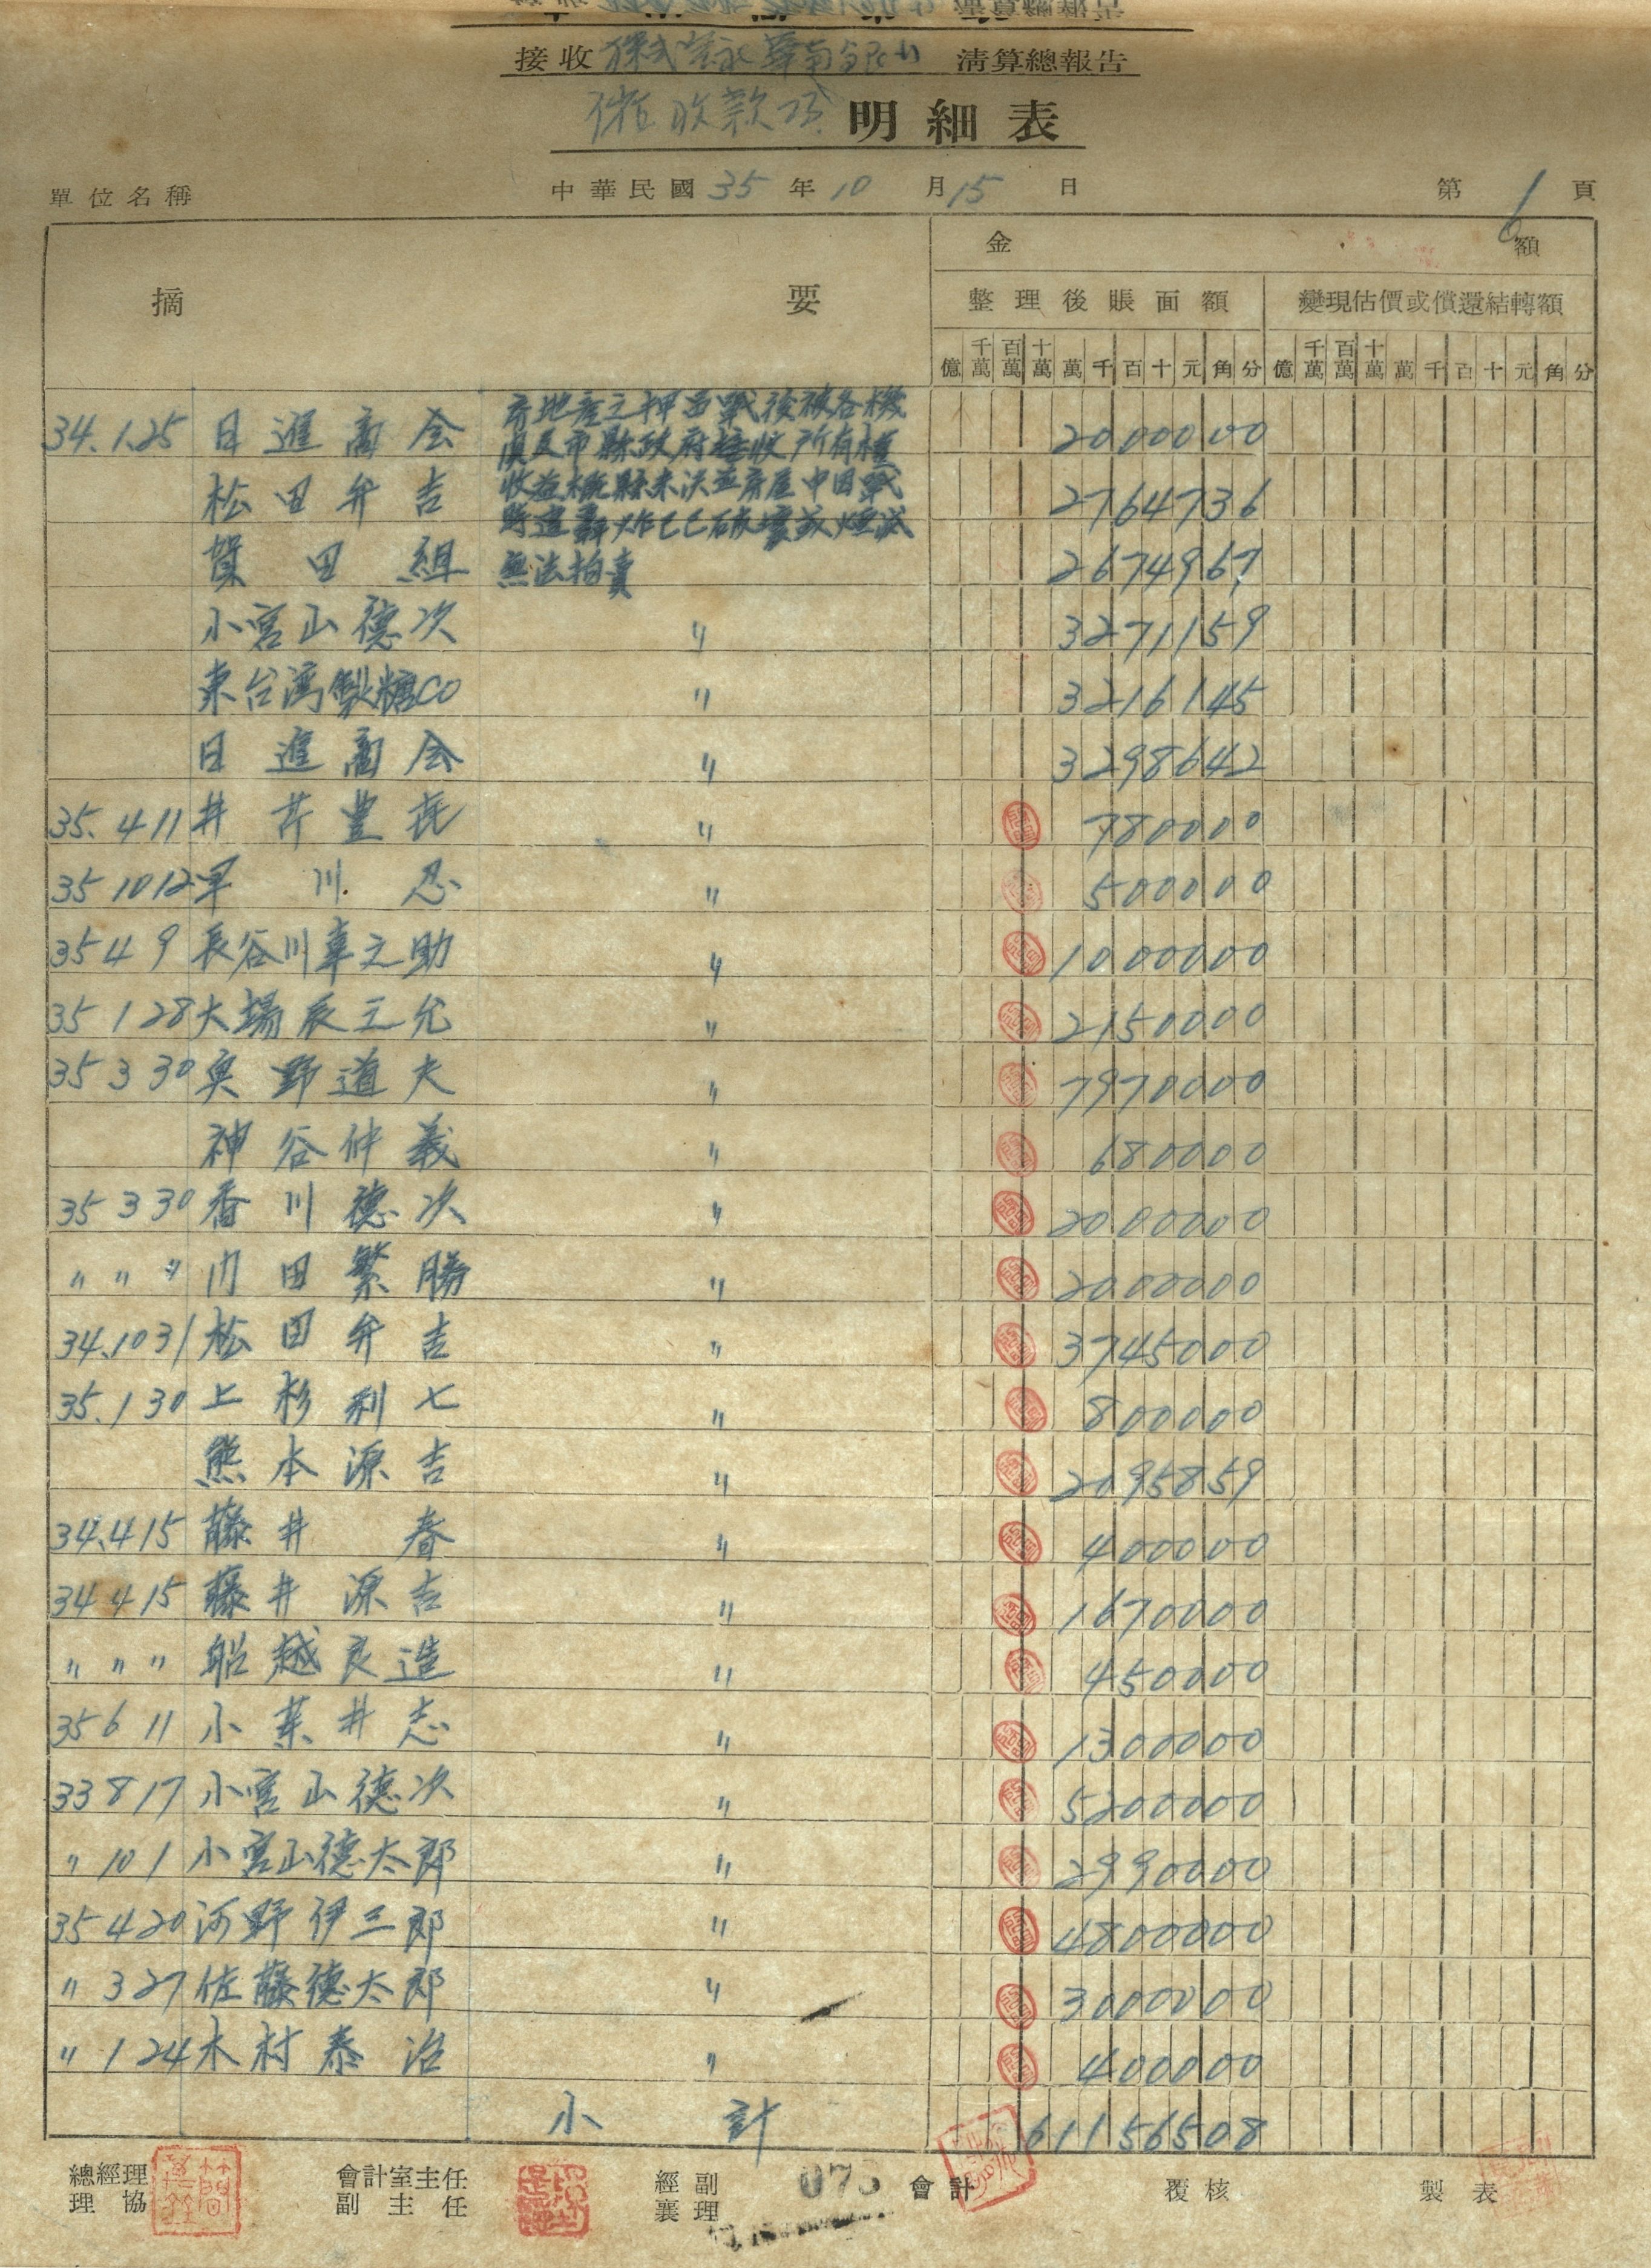 接收 株式會社華南銀行 清算總報告
催收款項 明細表
單位名稱 中華民國 35 年 10 月 15 日 第 1 頁
摘 要 金 額
整理後賬面額 變現估價或償還結轉額
億 千萬 百萬 十萬 萬 千 百 十 元 角 分 億 千萬 百萬 十萬 萬 千 百 十 元 角 分
34.1.25 日進商会 房地產之押品戰後被各機 2000000
関及市縣政府接收所有權
松田弁吉 收益概縣未決並房屋中因戰 2764736
時遭轟炸已已破壞或燒燬
賀田組 無法拍賣 2674967
小宮山德次 〃 3271159
東台湾製糖CO 〃 3216145
日進商会 〃 3298642
35.4 11 井芹豊長 〃 780000
35 10 12 早川忍 〃 500000
35 4 9 長谷川章之助 〃 1000000
35 1 28 大場辰三允 〃 2150000
35 3 30 奥野道夫 〃 7970000
神谷仲義 〃 680000
35 3 30 香川德次 〃 2000000
〃 〃 〃 内田繁勝 〃 2000000
34.10 31 松田弁吉 〃 3745000
35.1 30 上杉利七 〃 800000
熊本源吉 〃 2095859
34.4 15 藤井春 〃 400000
34 4 15 藤井源吉 〃 1670000
〃 〃 〃 船越良造 〃 450000
35 6 11 小葉井志 〃 1300000
33 8 17 小宮山德次 〃 5200000
〃 10 1 小宮山德太郎 〃 2990000
35 4 20 河野伊三郎 〃 4800000
〃 3 27 佐藤德太郎 〃 3000000
〃 1 24 木村泰治 〃 400000
小計 61156508
總經理 會計室主任 經副 073 會計 覆核 製表
理協 副主任 襄理